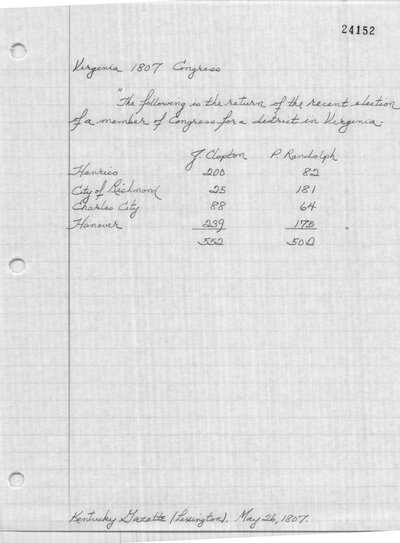 24152
Virginia 1807 Congress
"The following is the return of the recent election
of a member of Congress for a district in Virginia.
J. Clopton P. Randolph
Henrico 200 82
City of Richmond 25 181
Charles City 88 64
Hanover 239 175 "
552 502
Kentucky Gazette (Lexington). May 26, 1807.